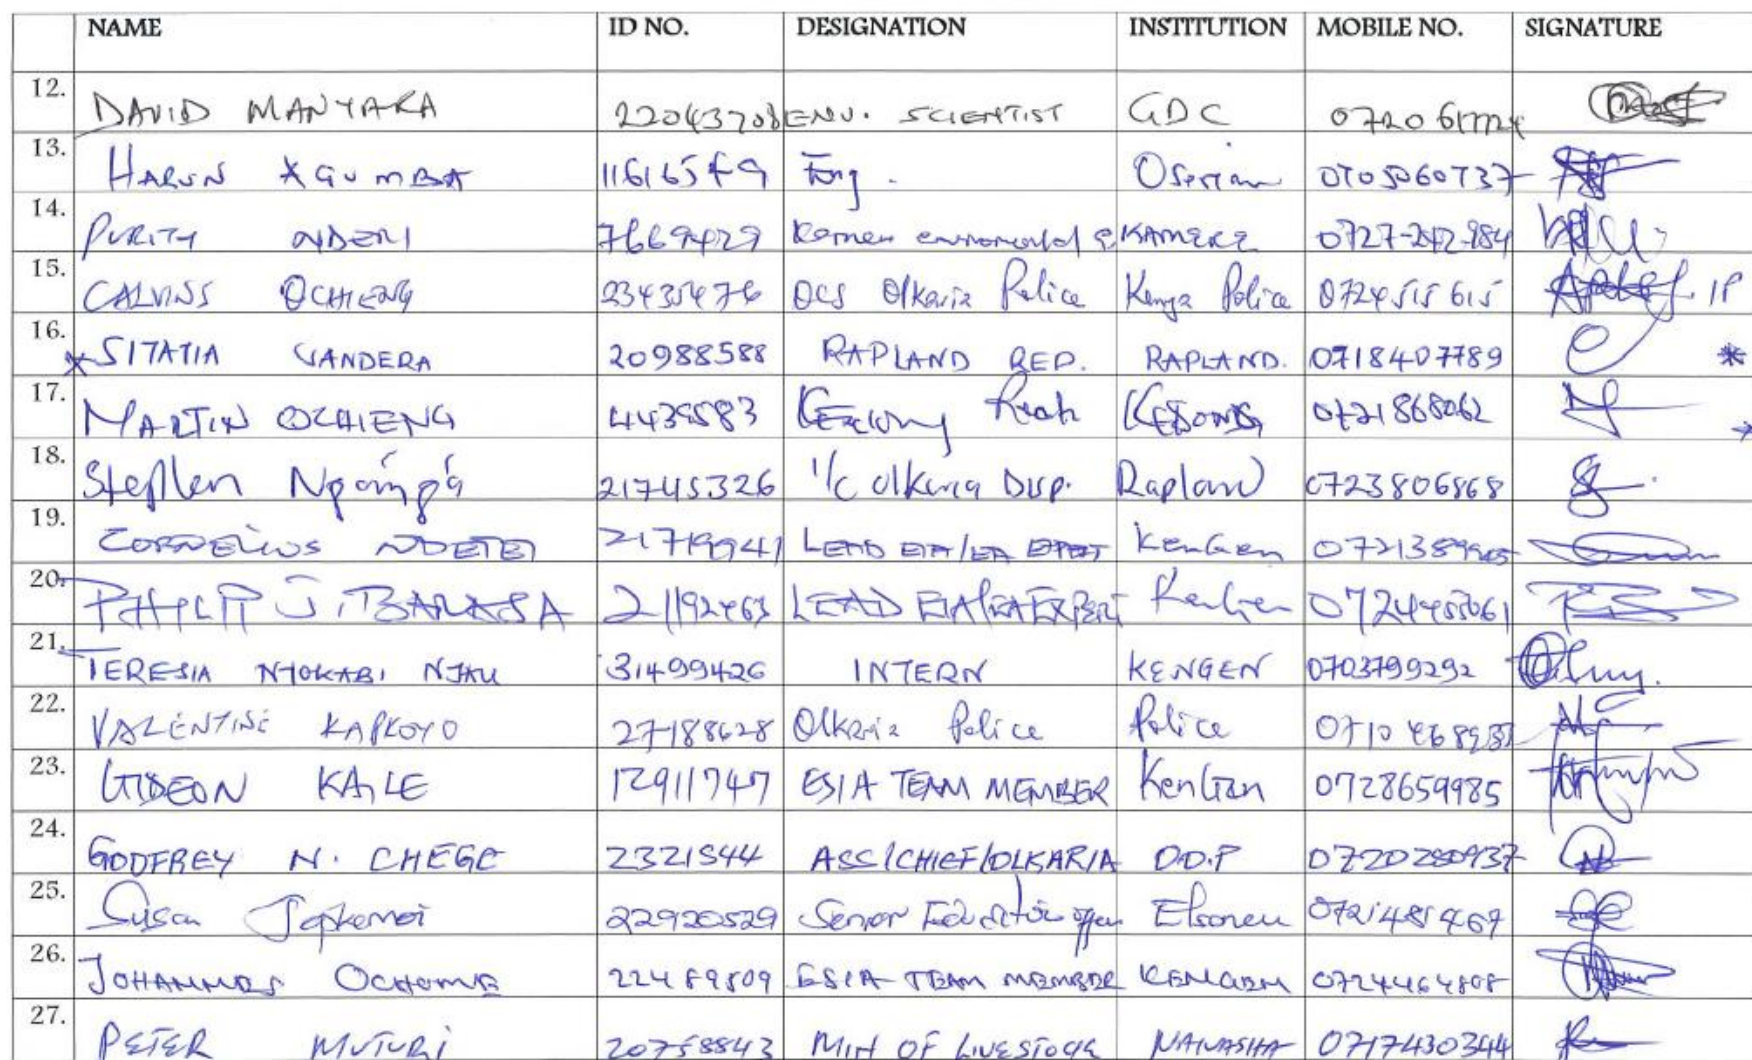 NAME ID NO. DESIGNATION INSTITUTION MOBILE NO. SIGNATURE
12. DAVID MANYARA 22043708 ENV. SCIENTIST GDC
13. HARUN Oserian
14. PURITY NDERI 7669429 KAMERE 0727-242-984
15. CALVINS OCHIENG 23435476 OCS Olkaria Police Kenya Police 0724515615
16. SITATIA 20988588 RAPLAND REP. RAPLAND. 0718407789
17. MARTIN OCHIENG 4439583 KEDONG 0721868062
18. Stephen 21745326 I/c Olkaria Disp. Rapland 0723806868
19. CORNELIUS NDETEI 21719941 LEAD EIA/EA EXPERT KenGen
20. PHILIP J. BARASA 21192463 LEAD EIA/EA EXPERT KenGen
21. TERESIA NJOKABI NJAU 31499426 INTERN KENGEN 0703799292
22. VALENTINE KAPKOYO 27188628 Olkaria Police Police
23. GIDEON KAILE 12911747 ESIA TEAM MEMBER KenGen 0728659985
24. GODFREY N. CHEGE 2321544 ASS/CHIEF/OLKARIA O.O.P 0720280937
25. Susan Jepkemoi 22920529 Senior Education officer
26. JOHANNES OCHOME 22489809 ESIA TEAM MEMBER KENGEN 0724464808
27. PETER MUTURI 20758843 MIN OF LIVESTOCK NAIVASHA 0717430344